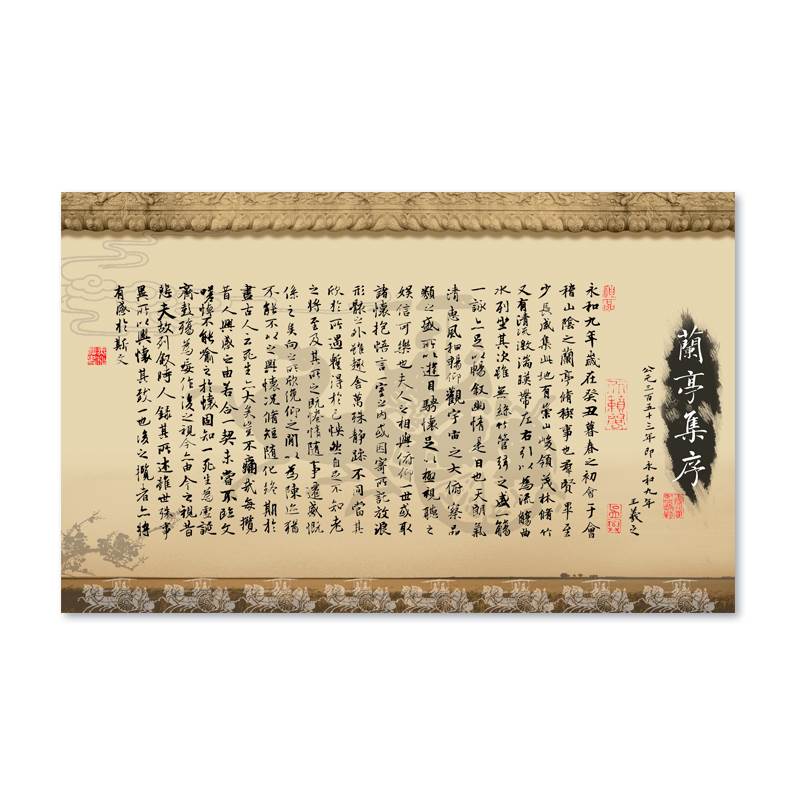 蘭亭集序
公元三百五十三年即永和九年
王羲之
永和九年歲在癸丑暮春之初會于會
稽山陰之蘭亭脩禊事也羣賢畢至
少長咸集此地有崇山峻領茂林脩竹
又有清流激湍暎帶左右引以為流觴曲
水列坐其次雖無絲竹管弦之盛一觴
一詠亦足以暢叙幽情是日也天朗氣
清惠風和暢仰觀宇宙之大俯察品
類之盛所以遊目騁懷足以極視聽之
娛信可樂也夫人之相與俯仰一世或取
諸懷抱悟言一室之內或因寄所託放浪
形骸之外雖趣舍萬殊靜躁不同當其
欣於所遇暫得於己怏然自足不知老
之將至及其所之既惓情隨事遷感慨
係之矣向之所欣俛仰之間以為陳迹猶
不能不以之興懷況脩短隨化終期於
盡古人云死生亦大矣豈不痛哉每攬
昔人興感之由若合一契未嘗不臨文
嗟悼不能喻之於懷固知一死生為虛誕
齊彭殤為妄作後之視今亦由今之視昔
悲夫故列叙時人錄其所述雖世殊事
異所以興懷其致一也後之攬者亦將
有感於斯文